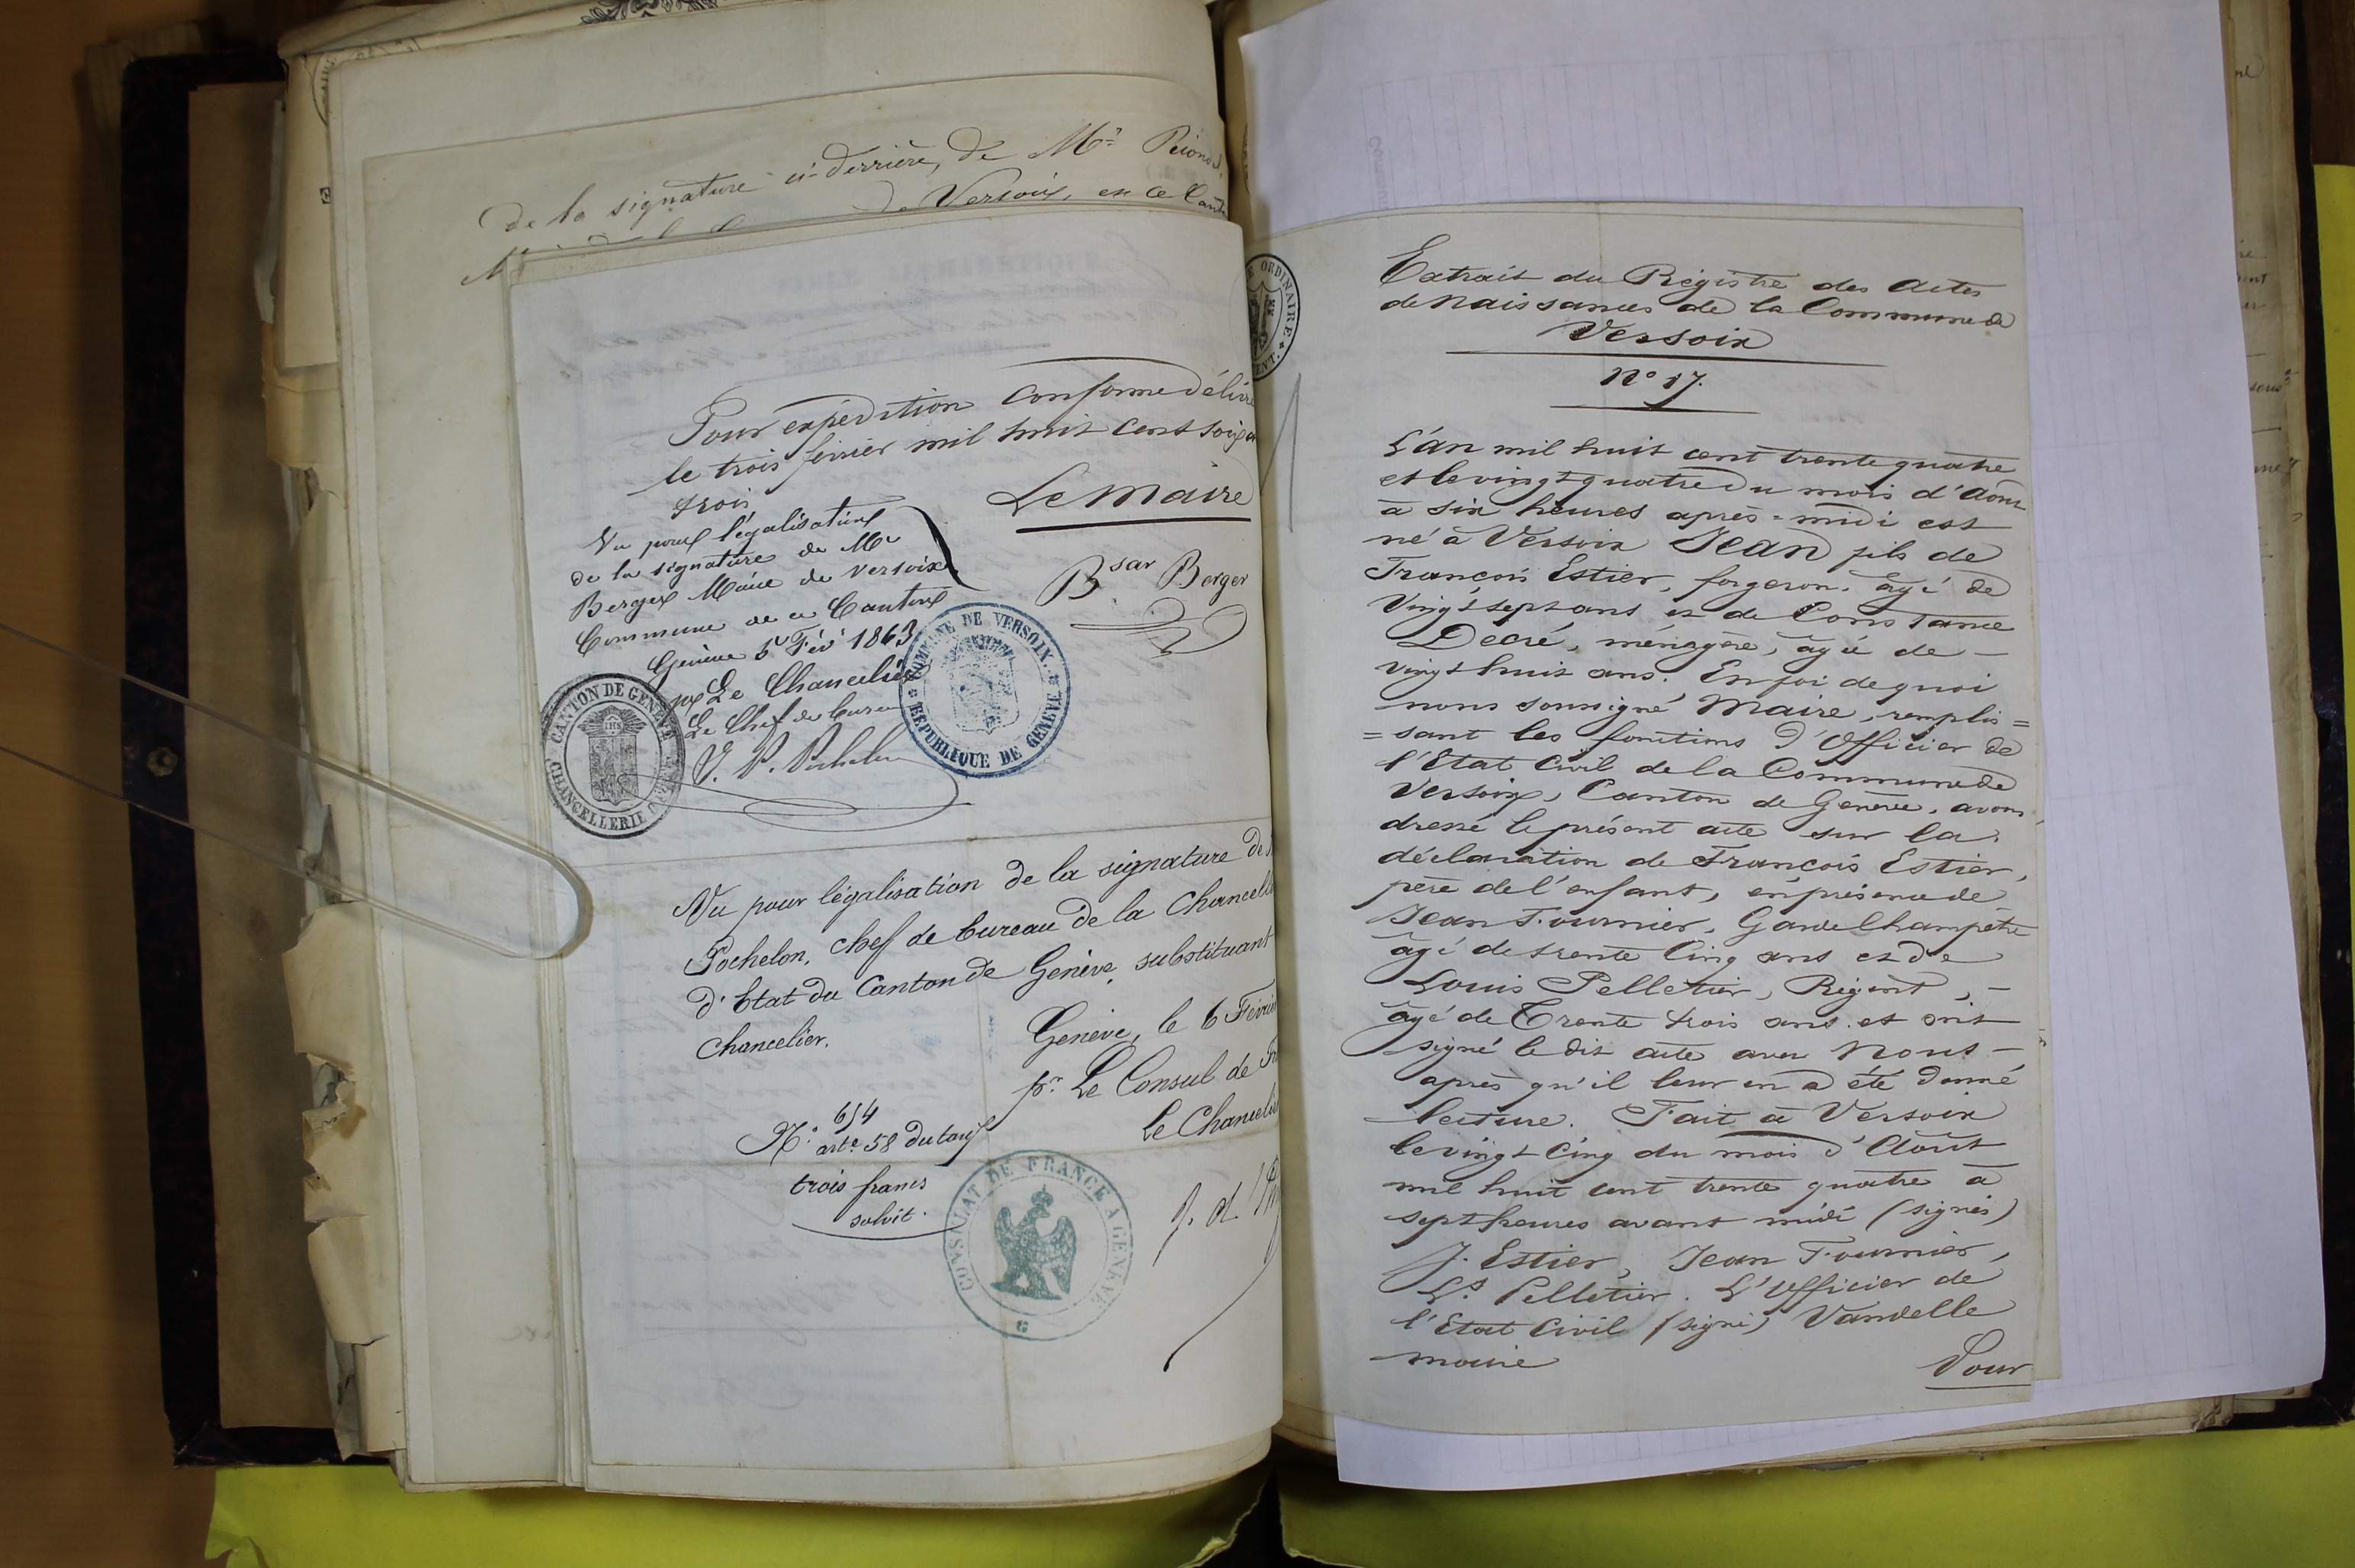 de la signature ci-derrière, de Mr
de Versoix, en ce Cant
Pour expédition conforme délivré
le trois février mil huit cent soixan
trois
Le Maire
Bsar Berger
Vu pour légalisation
de la signature de Mr
Berger Maire de Versoix
Commune de ce Canton
Genève 5 Fév 1863
pr Le Chancelier
Le Chef de bureau
COMMUNE DE VERSOIX
REPUBLIQUE DE GENEVE
CANTON DE GENEVE
CHANCELLERIE
Vu pour légalisation de la signature de
Pochelon, chef de bureau de la Chancell
d'Etat du Canton de Genève, substituant
Chancelier.
Genève, le 6 Février
pr. Le Consul de Fr
Le Chancelier
No. 654
arte. 58 du tarif
trois francs
solvit.
CONSULAT DE FRANCE A GENEVE
ORDINAIRE
Extrait du Régistre des Actes
de Naissances de la Commune de
Versoix
No 17.
L'an mil huit cent trente quatre
et le vingt quatre du mois d'Aout
à six heures après=midi est
né à Versoix Jean fils de
François Estier, forgeron, âgé de
Vingt sept ans et de Constance
Decré, ménagère, âgée de –
vingt huit ans. En foi de quoi
nous sousigné Maire, remplis=
=sant les fonctions d'Officier de
l'Etat Civil de la Commune de
Versoix, Canton de Genève, avons
dressé le présent acte sur la
déclaration de François Estier,
père de l'enfant, en présence de
Jean Fournier, Garde Champêtre
âgé de trente Cinq ans et de
Louis Pelletier, Régent, –
âgé de Trente trois ans. et ont
signé le dit acte avec Nous –
après qu'il leur en a été donné
lecture. Fait à Versoix
le vingt Cinq du mois d'Août
mil huit cent trente quatre à
sept heures avant midi (signés)
J. Estier, Jean Fournier,
Ls Pelletier. L'Officier de
l'Etat Civil (signé) Vandelle
maire
Pour